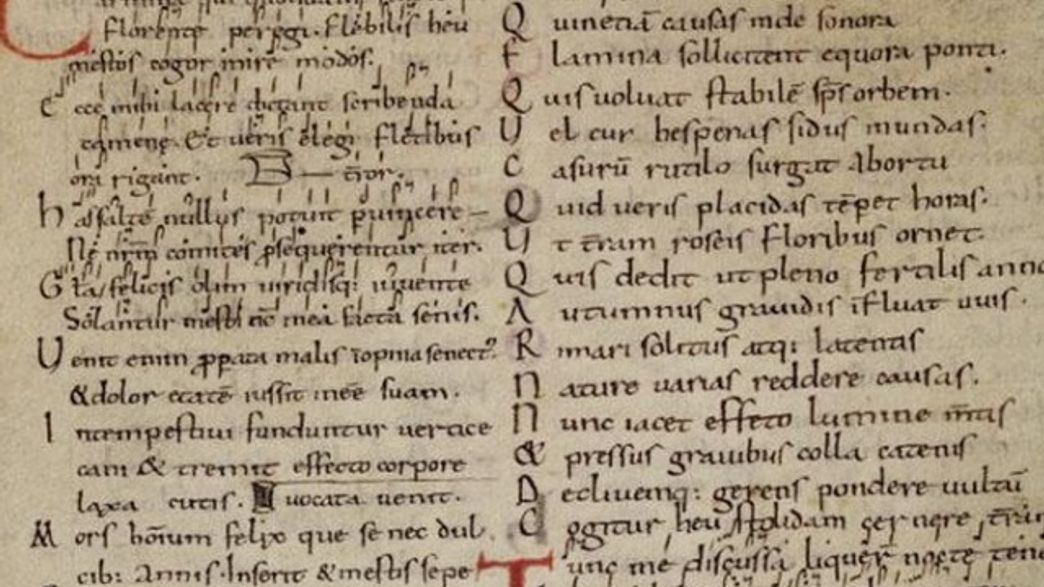 Florente peregi. Flebilis heu
mestos cogor inire modos.
Ecce mihi lacere dictant scribenda
camene. Et ueris elegi fletibus
ora rigant.
has saltē nullus potuit puincere
Ne nr̄m comites ꝓsequerentur iter.
Gl̄a felicis olim uiridisq: iuuente
Solantur mesti nc̄ mea facta senis.
Uenit enim ꝓpata malis īopina senect᾽
& dolor etatē iussit inēē suam.
Intempestiui funduntur uertice
cani & tremit effecto corpore
laxa cutis.
Mors hōium felix que se nec dul
cib: Annis. Inserit & mestis sepe
Quinetiā causas unde sonora
Flamina sollicitent equora ponti.
Quis uoluat stabilē sp̄s orbem.
Uel cur hesperias sidus in undas.
Casurū rutilo surgat Abortu
Quid ueris placidas tēpet horas.
Ut t̄ram roseis floribus ornet.
Quis dedit ut pleno fertilis anno
Autumnus grauidis īfluat uuis.
Rimari solitus atq: latentis
Nature uarias reddere causas.
Nunc iacet effeto lumine m̄tis
& pressus grauibus colla catenis
Decliuemq: gerens pondere uultū
Cogitur heu stolidam cernere
Tunc me discussa liquer nocte tene